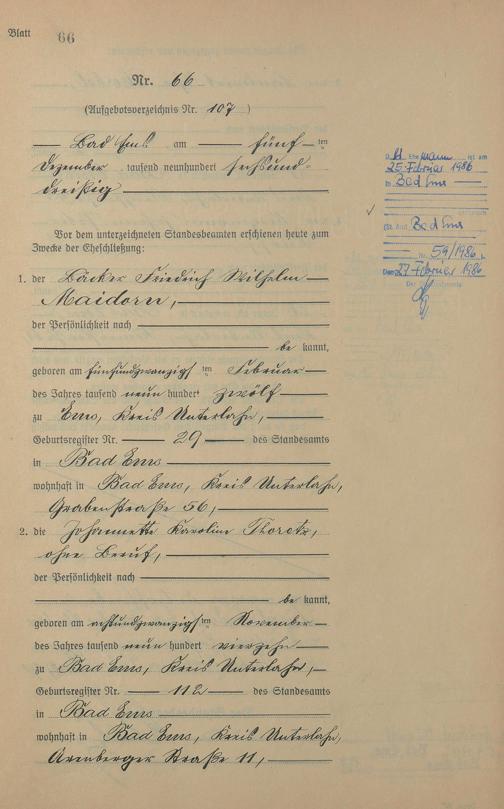 Blatt 66
Nr. 66
(Aufgebotsverzeichnis Nr. 107)
Bad Ems am fünften
Dezember tausend neunhundert sechsund-
dreißig
Vor dem unterzeichneten Standesbeamten erschienen heute zum
Zwecke der Eheschließung:
1. der Bäcker Friedrich Wilhelm
Maidorn,
der Persönlichkeit nach
be kannt,
geboren am fünfundzwanzigsten Februar
des Jahres tausend neun hundert zwölf
zu Ems, Kreis Unterlahn,
Geburtsregister Nr. 29 des Standesamts
in Bad Ems
wohnhaft in Bad Ems, Kreis Unterlahn,
Grabenstraße 56,
2. die Johannette Karoline
ohne Beruf,
der Persönlichkeit nach
be kannt,
geboren am achtundzwanzigsten November
des Jahres tausend neun hundert vierzehn
zu Bad Ems, Kreis Unterlahn,
Geburtsregister Nr. 112 des Standesamts
in Bad Ems
wohnhaft in Bad Ems, Kreis Unterlahn,
Arenberger Straße 11,
Ehemann ist am
25. Februar 1986
in Bad Ems
Bad Ems
Nr. 59/1986
Den 27. Februar 1986